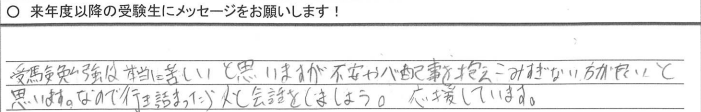 ○ 来年度以降の受験生にメッセージをお願いします！
受験勉強は本当に苦しいと思いますが不安や心配事を抱えこみすぎない方が良いと
思います。なので行き詰まったら人と会話をしましょう。応援しています。